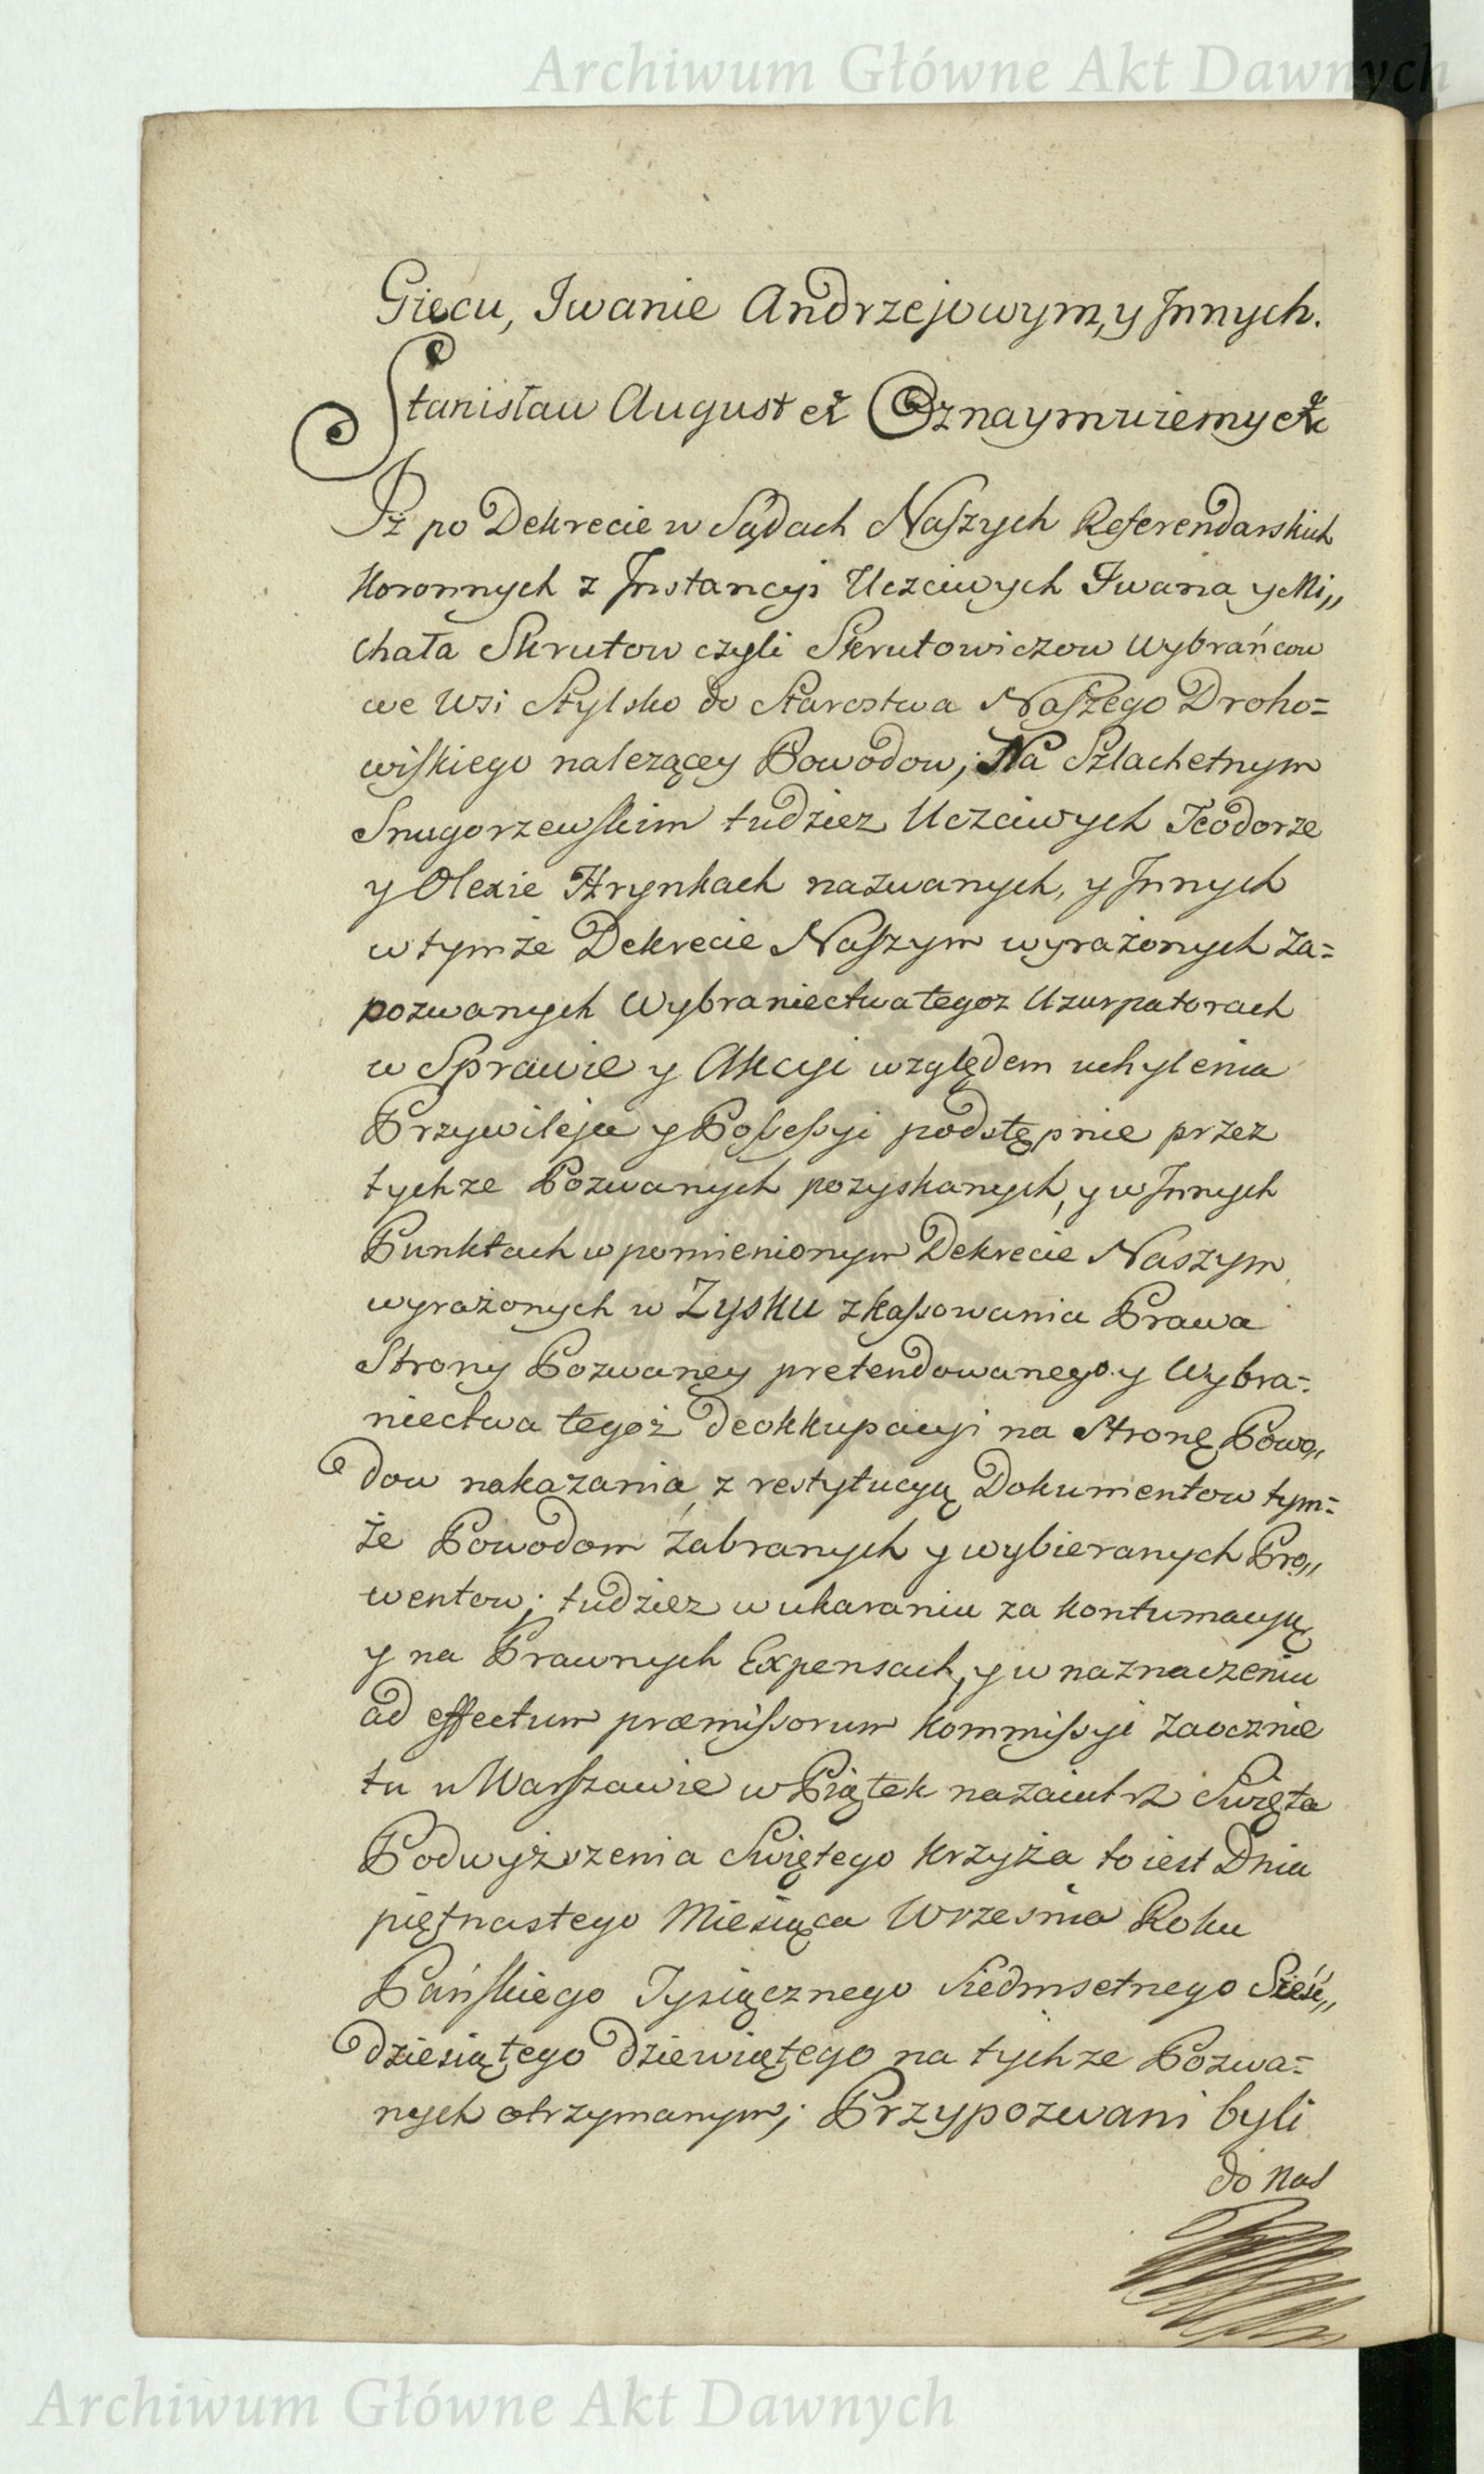 Archiwum Główne Akt Dawnych
Giecu, Iwanie Andrzejowym, y Innych.
Stanisław August etc Oznaymuiemy etc
Iż po Dekrecie w Sądach Naszych Referendarskich
Koronnych z Instancyi Uczciwych Iwana y Mi„
chała Skrutow czyli Skrutowiczow Wybrańcow
we Wsi Stylsko do Starostwa Naszego Droho=
wiskiego nalezącey Powodow; Na Szlachetnym
Snugorzewskim tudziez Uczciwych Teodorze
y Olexie Hrynkach nazwanych, y Innych
w tymże Dekrecie Naszym wyrażonych Za=
pozwanych Wybraniectwa tegoz Uzurpatorach
w Sprawie y Akcyi względem uchylenia
Przywileju y Possessyi podstępnie przez
tychze Pozwanych pozyskanych, y w Innych
Punktach w pomienionym Dekrecie Naszym
wyrażonych w Zysku zkassowania Prawa
Strony Pozwaney pretendowanego y Wybra=
niectwa tegoż deokkupacyi na Stronę Powo„
dow nakazania, z restytucyą Dokumentow tym=
że Powodom zabranych y wybieranych Pro„
wentow; tudziez w ukaraniu za kontumacyą
y na Prawnych Expensach, y w naznaczeniu
ad effectum præmissorum Kommissyi zaocznie
tu w Warszawie w Piątek nazaiutrz Swięta
Podwyższenia Swiętego Krzyża to iest Dnia
piętnastego Miesiąca Wrzesnia Roku
Pańskiego Tysiącznego Siedmsetnego Sześć„
dziesiątego dziewiątego na tychze Pozwa=
nych otrzymanym; Przypozwani byli
do Nas
Archiwum Główne Akt Dawnych